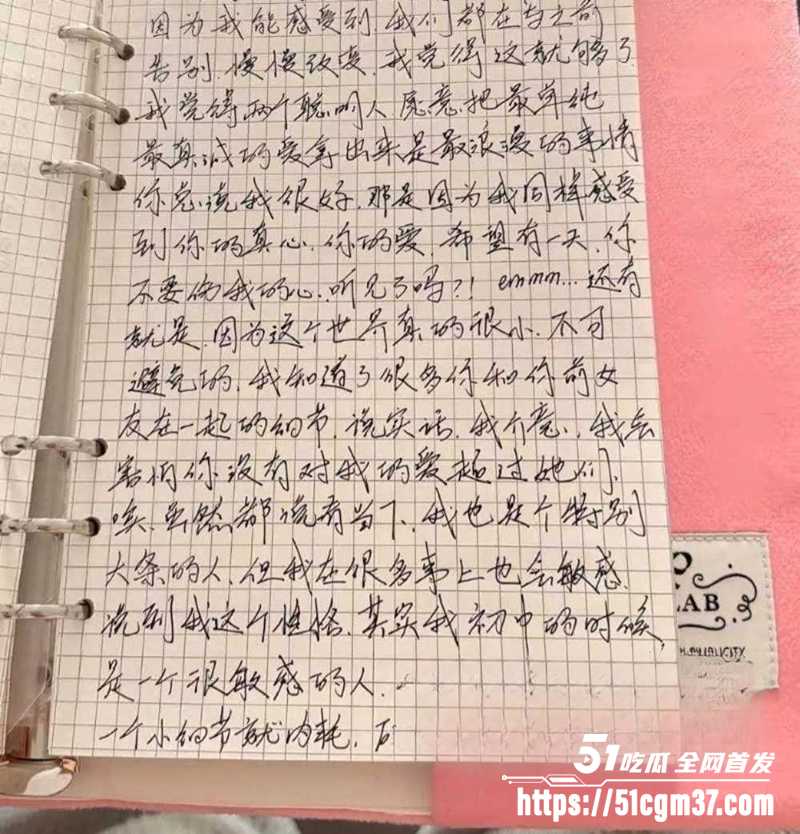 因为我能感受到 我们都在与之前
告别.慢慢改变.我觉得这就够了
我觉得两个聪明人愿意把最单纯
最真诚的爱拿出来是最浪漫的事情
你总说我很好.那是因为我同样感受
到你的真心.你的爱.希望有一天.你
不要伤我的心.听见了吗?! emmm...还有
就是.因为这个世界真的很小.不可
避免的.我知道了很多你和你前女
友在一起的细节.说实话.我介意.我会
害怕你没有对我的爱超过她们.
唉.虽然都说看当下.我也是个特别
大条的人.但我在很多事上也会敏感.
说到我这个性格.其实我初中的时候,
是一个很敏感的人.
一个小细节就内耗.
LAB
51吃瓜 全网首发
https://51cgm37.com